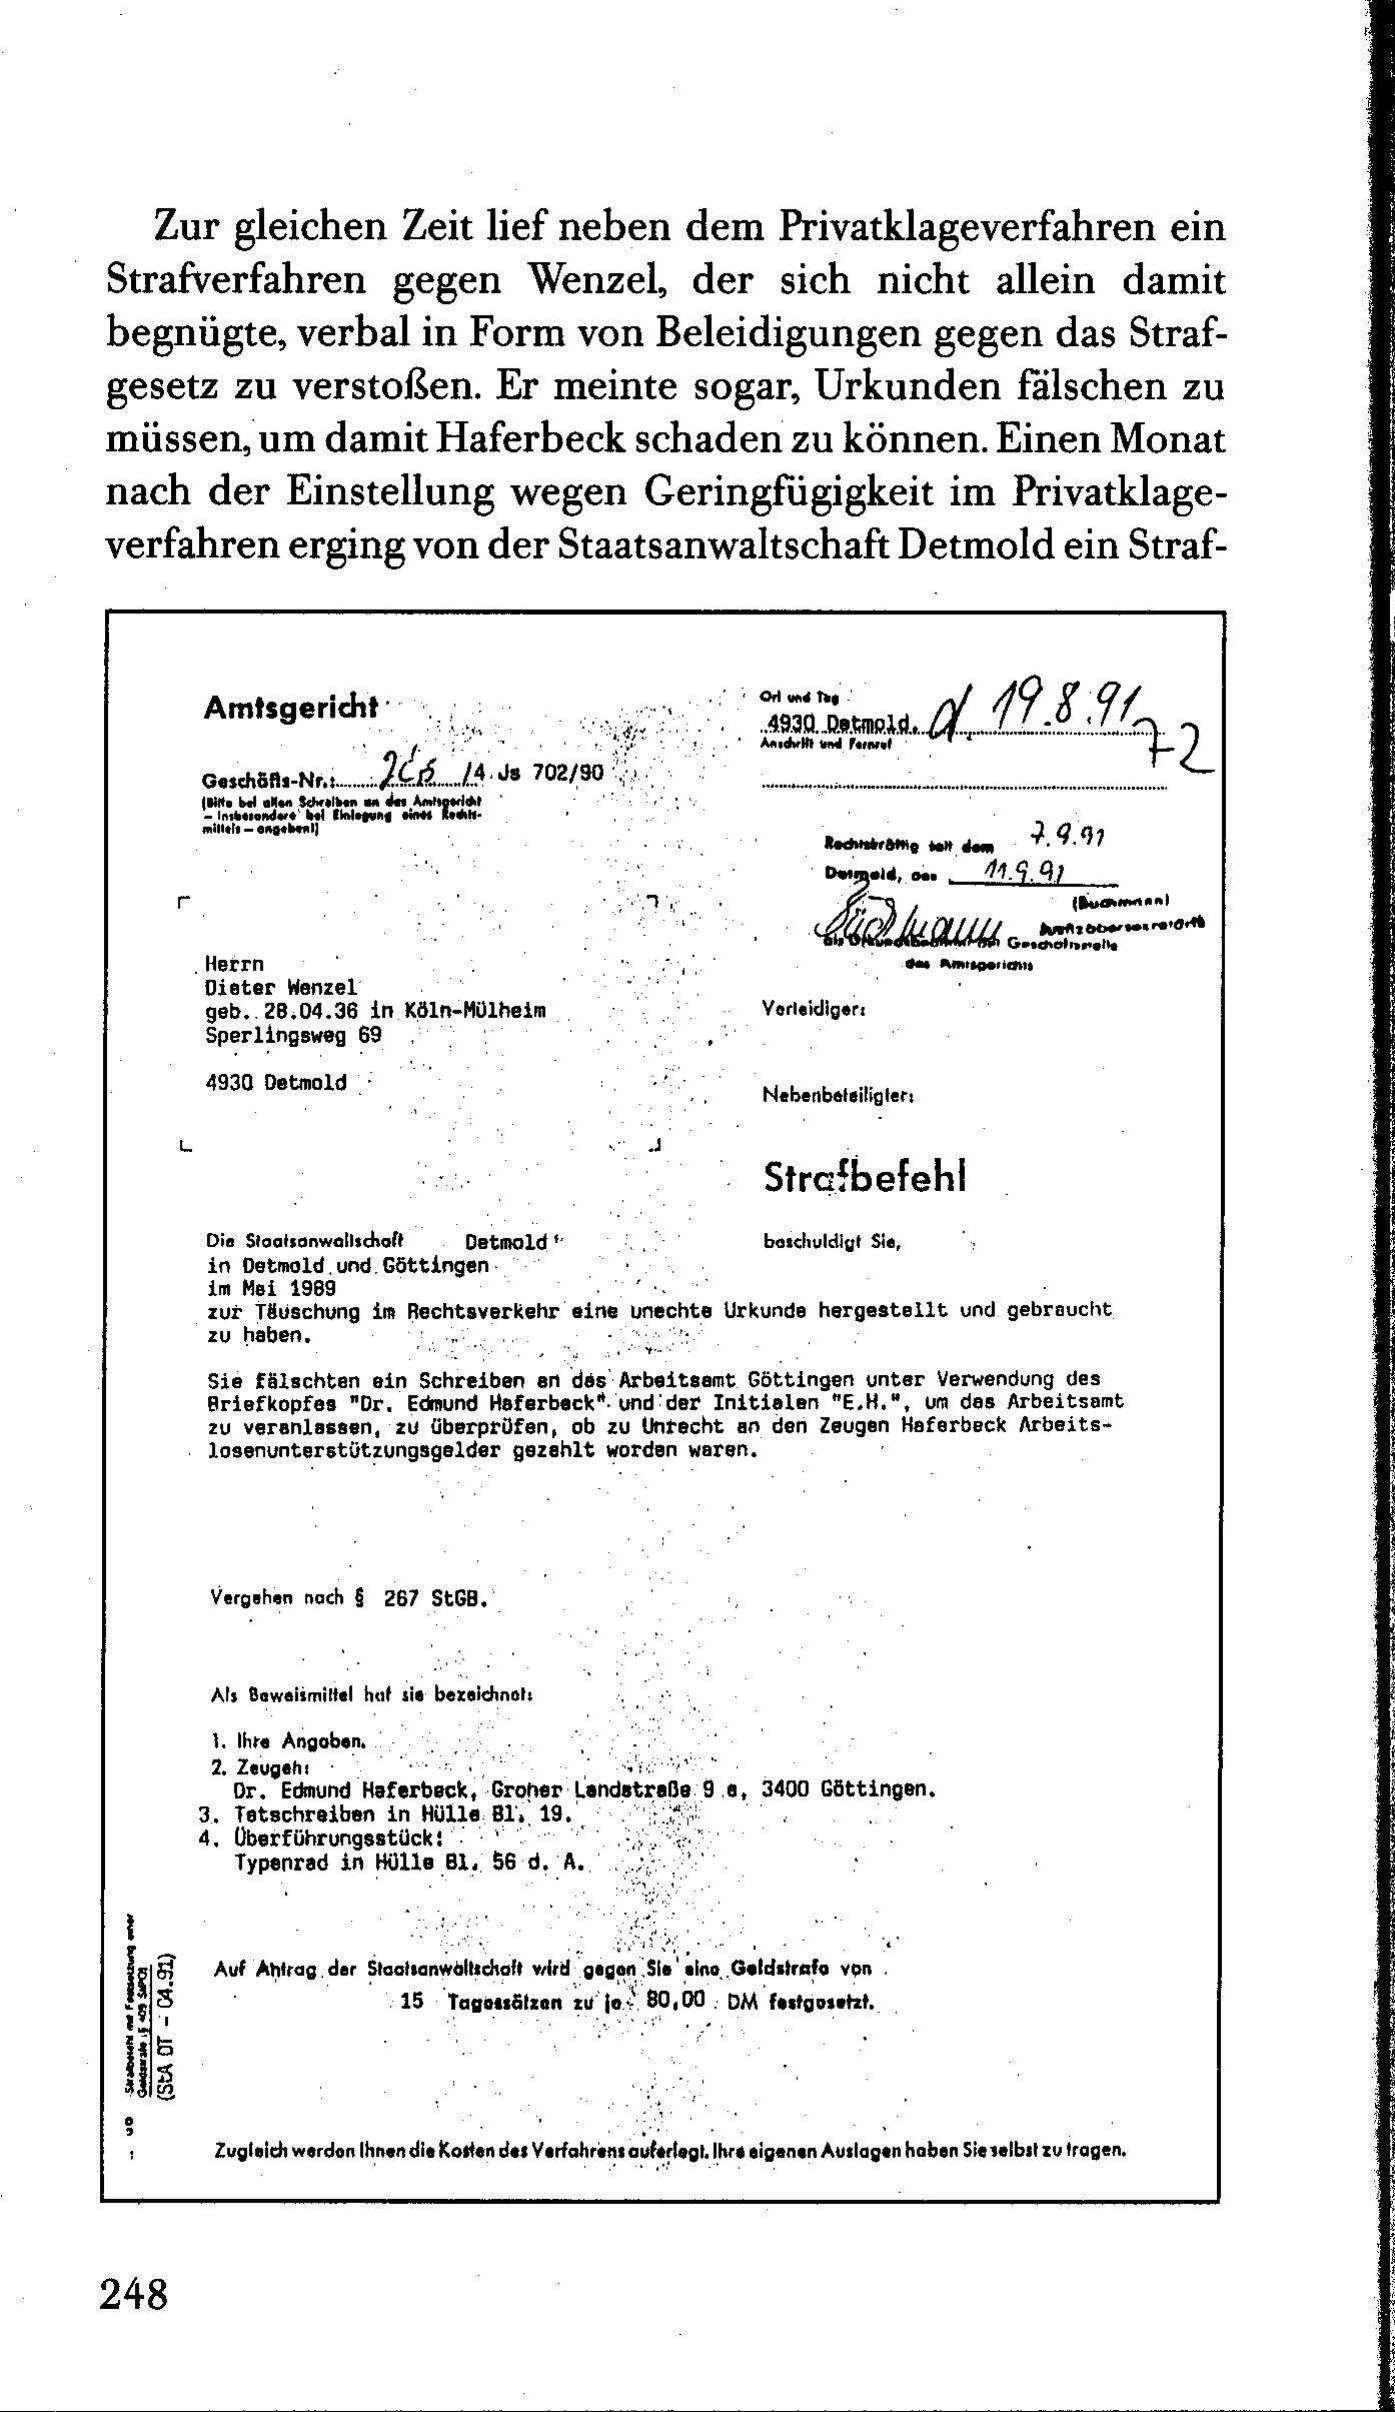 Zur gleichen Zeit lief neben dem Privatklageverfahren ein
Strafverfahren gegen Wenzel, der sich nicht allein damit
begnügte, verbal in Form von Beleidigungen gegen das Straf-
gesetz zu verstoßen. Er meinte sogar, Urkunden fälschen zu
müssen, um damit Haferbeck schaden zu können. Einen Monat
nach der Einstellung wegen Geringfügigkeit im Privatklage-
verfahren erging von der Staatsanwaltschaft Detmold ein Straf-
Amtsgericht
Geschäfts-Nr.: /4 Js 702/90
(Bitte bei allen Schreiben an das Amtsgericht
– insbesondere bei Einlegung eines Rechts-
mittels – angeben!)
Ort und Tag
4930 Detmold, d. 19.8.91
Anschrift und Fernruf
72
Rechtskräftig seit dem 7.9.91
Detmold, den 11.9.91
(Buchmann)
Justizobersekretärin
als Urkundsbeamtin der Geschäftsstelle
des Amtsgerichts
Herrn
Dieter Wenzel
geb. 28.04.36 in Köln-Mülheim
Sperlingsweg 69
4930 Detmold
Verteidiger:
Nebenbeteiligter:
Strafbefehl
Die Staatsanwaltschaft Detmold beschuldigt Sie,
in Detmold und Göttingen
im Mai 1989
zur Täuschung im Rechtsverkehr eine unechte Urkunde hergestellt und gebraucht
zu haben.
Sie fälschten ein Schreiben an das Arbeitsamt Göttingen unter Verwendung des
Briefkopfes "Dr. Edmund Haferbeck" und der Initialen "E.H.", um das Arbeitsamt
zu veranlassen, zu überprüfen, ob zu Unrecht an den Zeugen Haferbeck Arbeits-
losenunterstützungsgelder gezahlt worden waren.
Vergehen nach § 267 StGB.
Als Beweismittel hat sie bezeichnet:
1. Ihre Angaben.
2. Zeugen:
Dr. Edmund Haferbeck, Groner Landstraße 9 a, 3400 Göttingen.
3. Tatschreiben in Hülle Bl. 19.
4. Überführungsstück:
Typenrad in Hülle Bl. 56 d. A.
Auf Antrag der Staatsanwaltschaft wird gegen Sie eine Geldstrafe von
15 Tagessätzen zu je 80,00 DM festgesetzt.
Strafbefehl mit Festsetzung einer
Geldstrafe (§ 409 StPO)
(StA DT - 04.91)
Zugleich werden Ihnen die Kosten des Verfahrens auferlegt. Ihre eigenen Auslagen haben Sie selbst zu tragen.
248